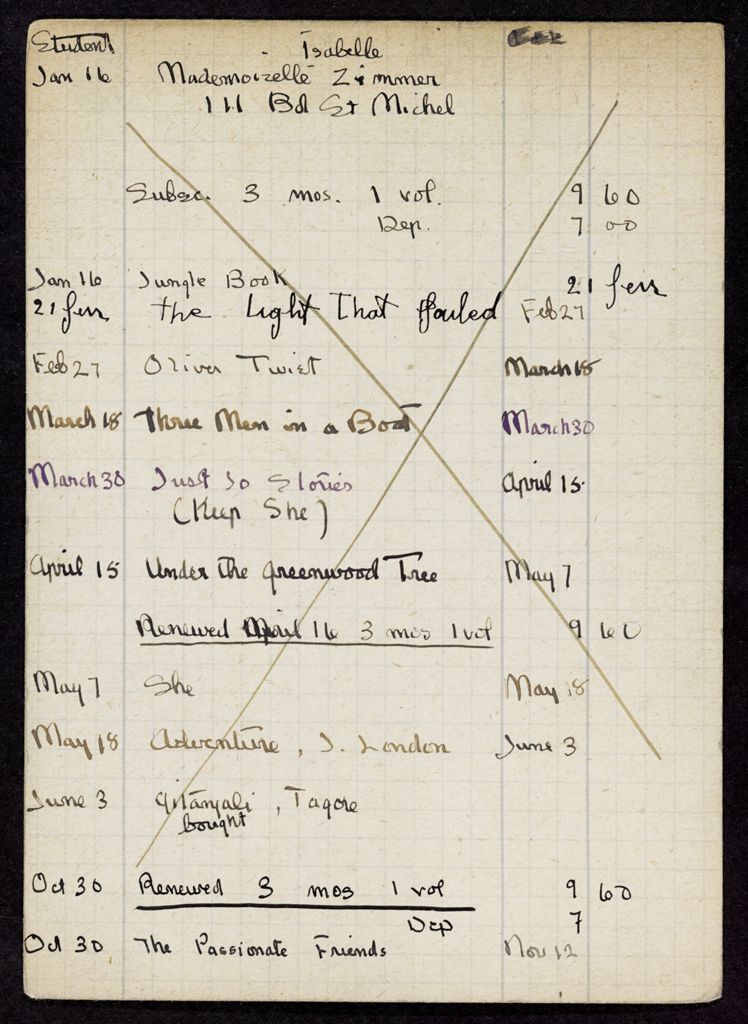 Student
Isabelle
Jan 16 Mademoizelle Zimmer
111 Bd St Michel
Subsc. 3 mos. 1 vol. 9 60
Dep. 7 00
Jan 16 Jungle Book 21 fevr
21 fevr the Light That ffailed Feb 27
Feb 27 Oliver Twist March 18
March 18 Three Men in a Boat March 30
March 30 Just So Stories April 15
(Keep She)
April 15 Under the Greenwood Tree May 7
Renewed April 16 3 mos 1 vol 9 60
May 7 She May 18
May 18 Adventure, J. London June 3
June 3 Gitanjali, Tagore
bought
Oct 30 Renewed 3 mos 1 vol 9 60
Dep 7
Oct 30 The Passionate Friends Nov 12